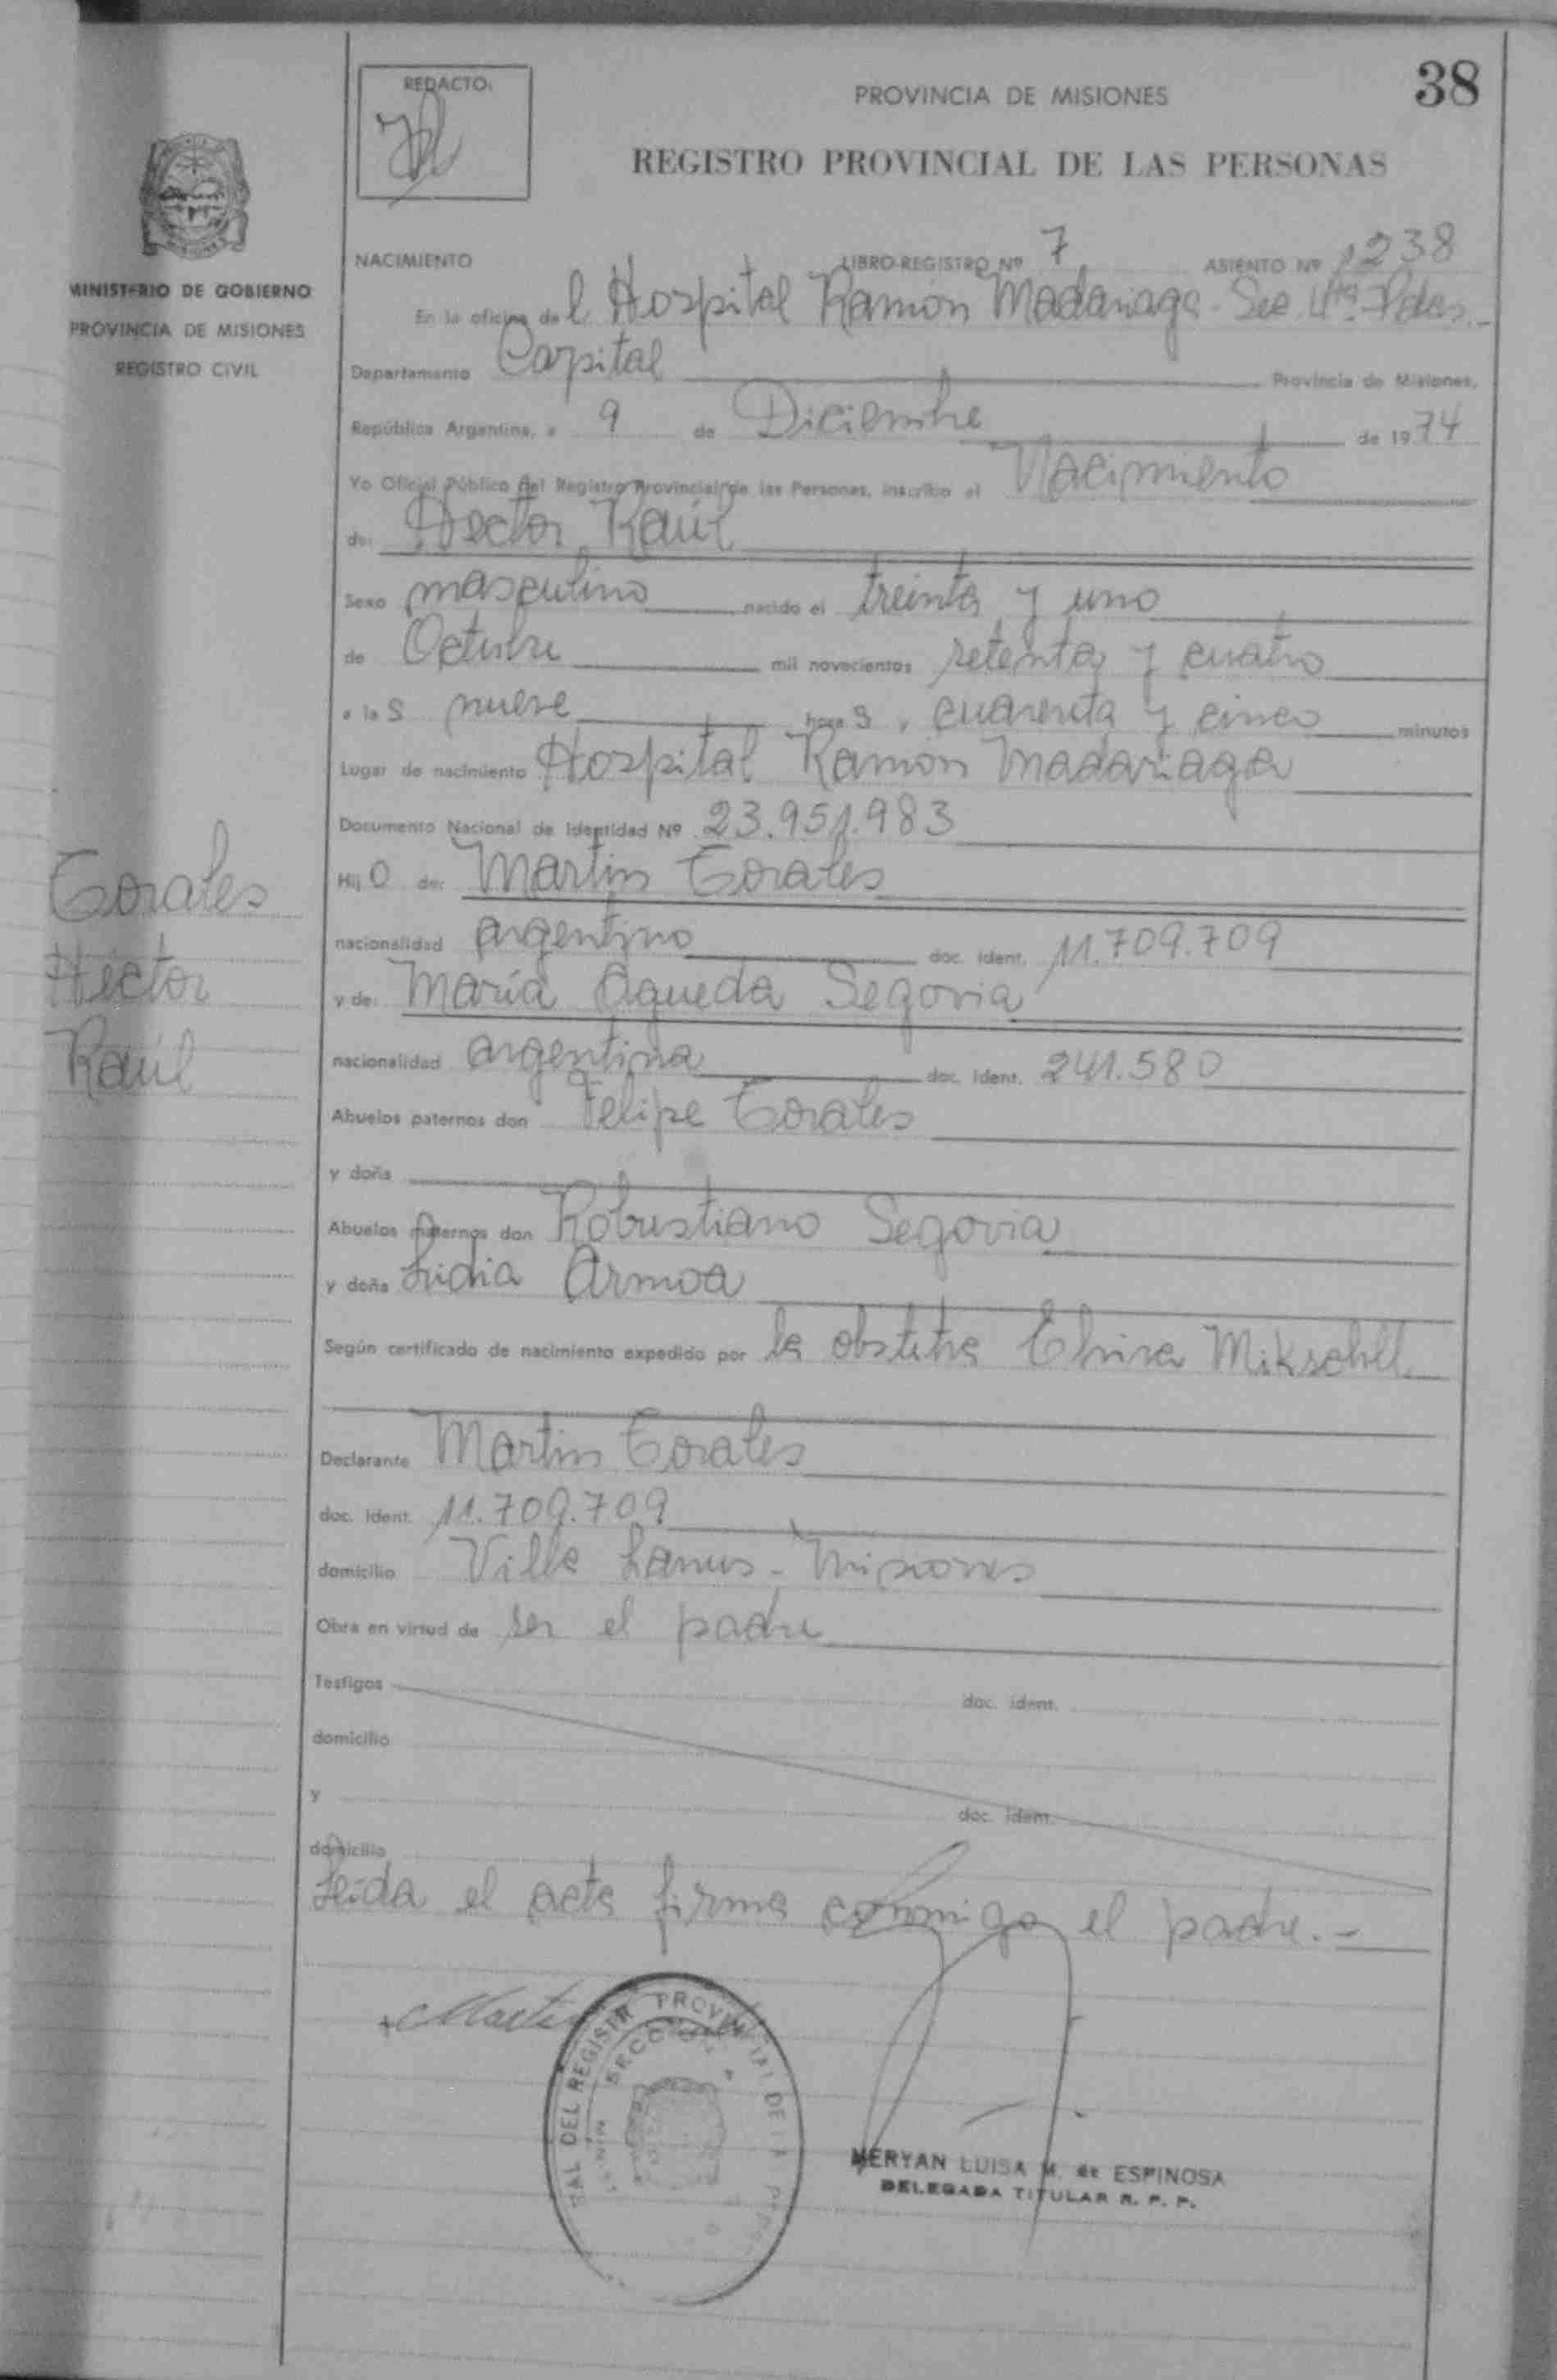 38
REDACTO:
PROVINCIA DE MISIONES
REGISTRO PROVINCIAL DE LAS PERSONAS
MINISTERIO DE GOBIERNO
PROVINCIA DE MISIONES
REGISTRO CIVIL
NACIMIENTO LIBRO-REGISTRO Nº 7 ASIENTO Nº 1238
En la oficina del Hospital Ramón Madariaga - Sec. 4ta. Pdas.-
Departamento Capital Provincia de Misiones,
República Argentina, a 9 de Diciembre de 1974
Yo Oficial Público del Registro Provincial de las Personas, inscribo el Nacimiento
de: Hector Raúl
Sexo masculino nacido el treinta y uno
de Octubre mil novecientos setenta y cuatro
a las nueve horas, cuarenta y cinco minutos
Lugar de nacimiento Hospital Ramón Madariaga
Documento Nacional de Identidad Nº 23.951.983
Hijo de: Martin Corales
nacionalidad argentino doc. ident. 11.709.709
y de: María Agueda Segovia
nacionalidad argentina doc. ident. 241.580
Abuelos paternos don Felipe Corales
y doña
Abuelos maternos don Robustiano Segovia
y doña Lidia Armoa
Según certificado de nacimiento expedido por la obstetra Elvira
Declarante Martin Corales
doc. ident. 11.709.709
domicilio Villa Lanus - Misiones
Obra en virtud de ser el padre
Testigos doc. ident.
domicilio
y doc. ident.
domicilio
Leída el acta firma conmigo el padre.-
Corales
Héctor
Raúl
Martin
DEL REGISTR PROVINCIAL DE LA
SECCION
MERYAN LUISA M. de ESPINOSA
DELEGADA TITULAR R. P. P.